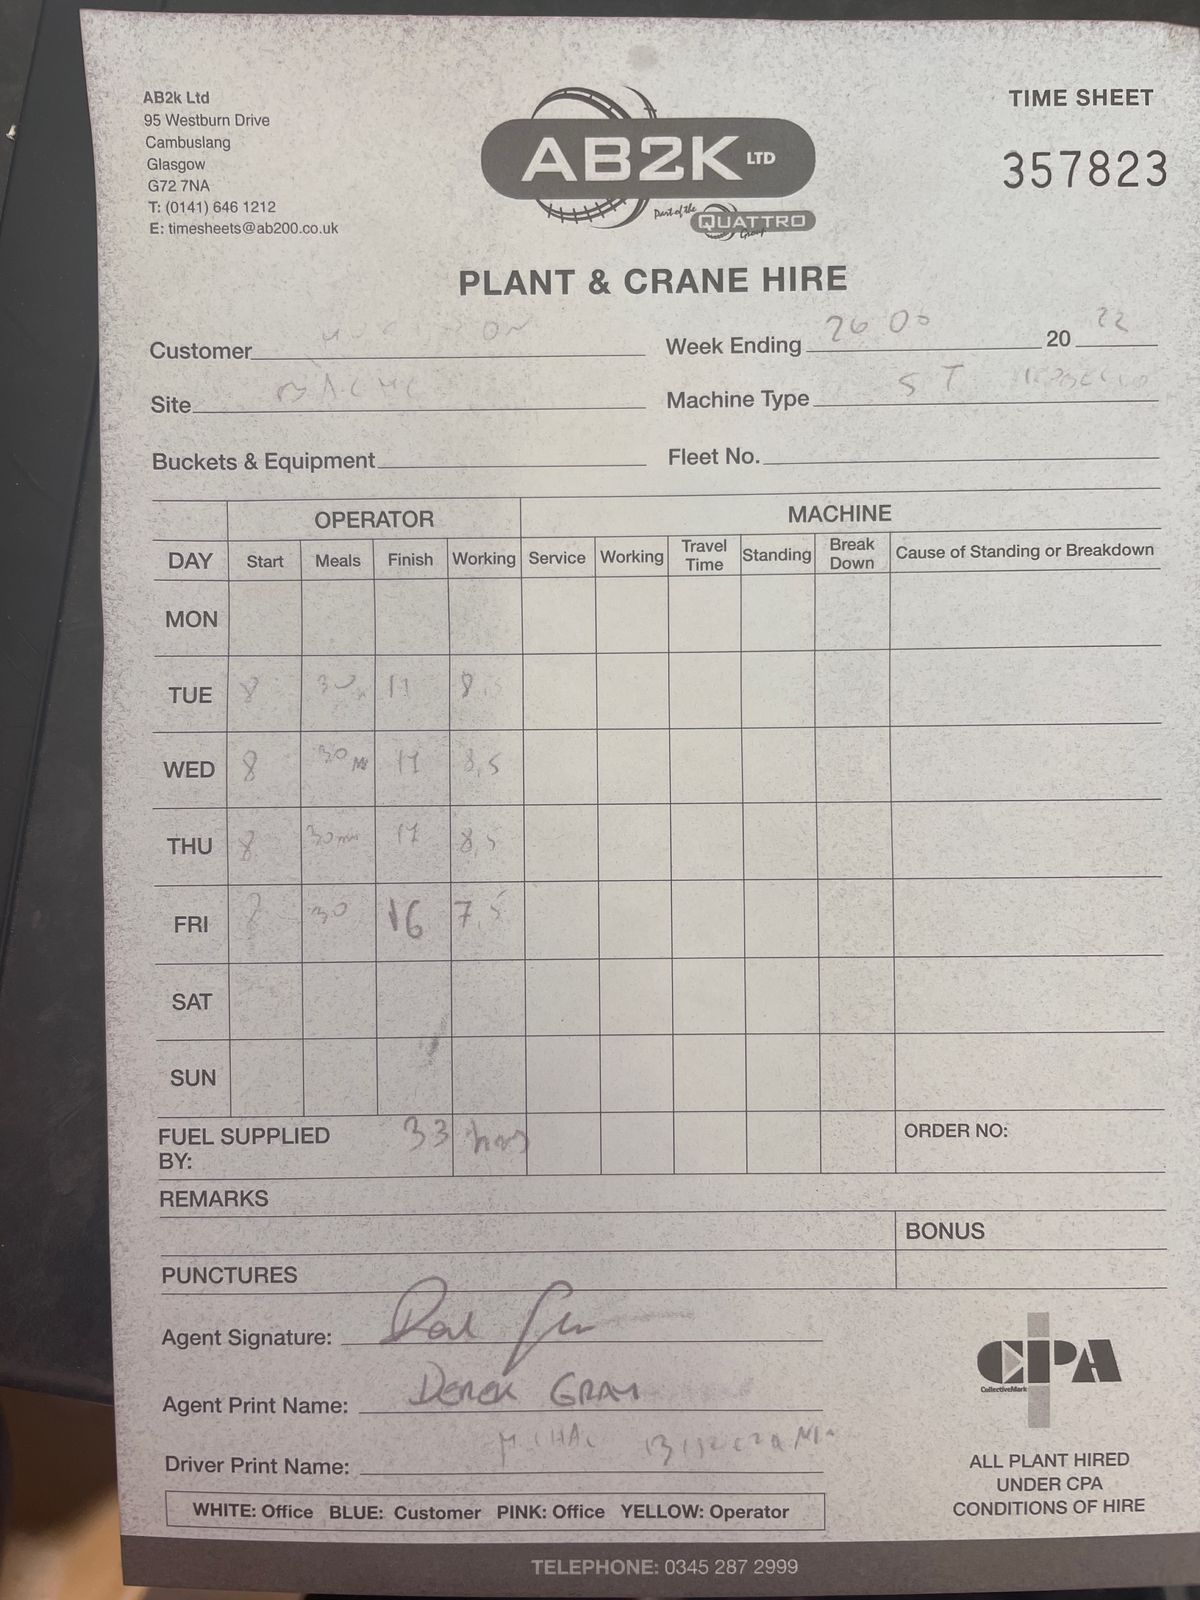 AB2k Ltd
95 Westburn Drive
Cambuslang
Glasgow
G72 7NA
T: (0141) 646 1212
E: timesheets@ab200.co.uk
AB2K LTD
Part of the
QUATTRO
Group
TIME SHEET
357823
PLANT & CRANE HIRE
Customer
Week Ending 26 20 22
Site
Machine Type 5 T
Buckets & Equipment
Fleet No.
OPERATOR MACHINE
DAY Start Meals Finish Working Service Working Travel Time Standing Break Down Cause of Standing or Breakdown
MON
TUE 8 30 17 8.5
WED 8 30 17 8,5
THU 8 30min 17 8,5
FRI 30 16 7,5
SAT
SUN
FUEL SUPPLIED BY: 33 ORDER NO:
REMARKS
BONUS
PUNCTURES
Agent Signature:
Agent Print Name: DEREK GRAY
Driver Print Name: MICHAL
WHITE: Office BLUE: Customer PINK: Office YELLOW: Operator
CPA
CollectiveMark
ALL PLANT HIRED
UNDER CPA
CONDITIONS OF HIRE
TELEPHONE: 0345 287 2999